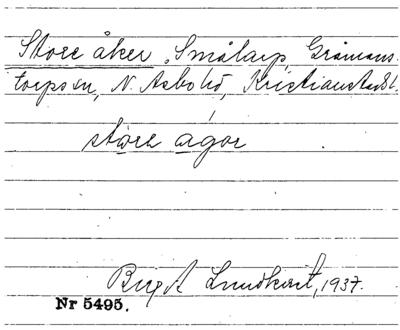 Store åker, Smålarp, Gråmans-
torps sn, N. Åsbo hd, Kristianstads l.
störe agor
Birgit Lundkvist, 1937.
Nr 5495.